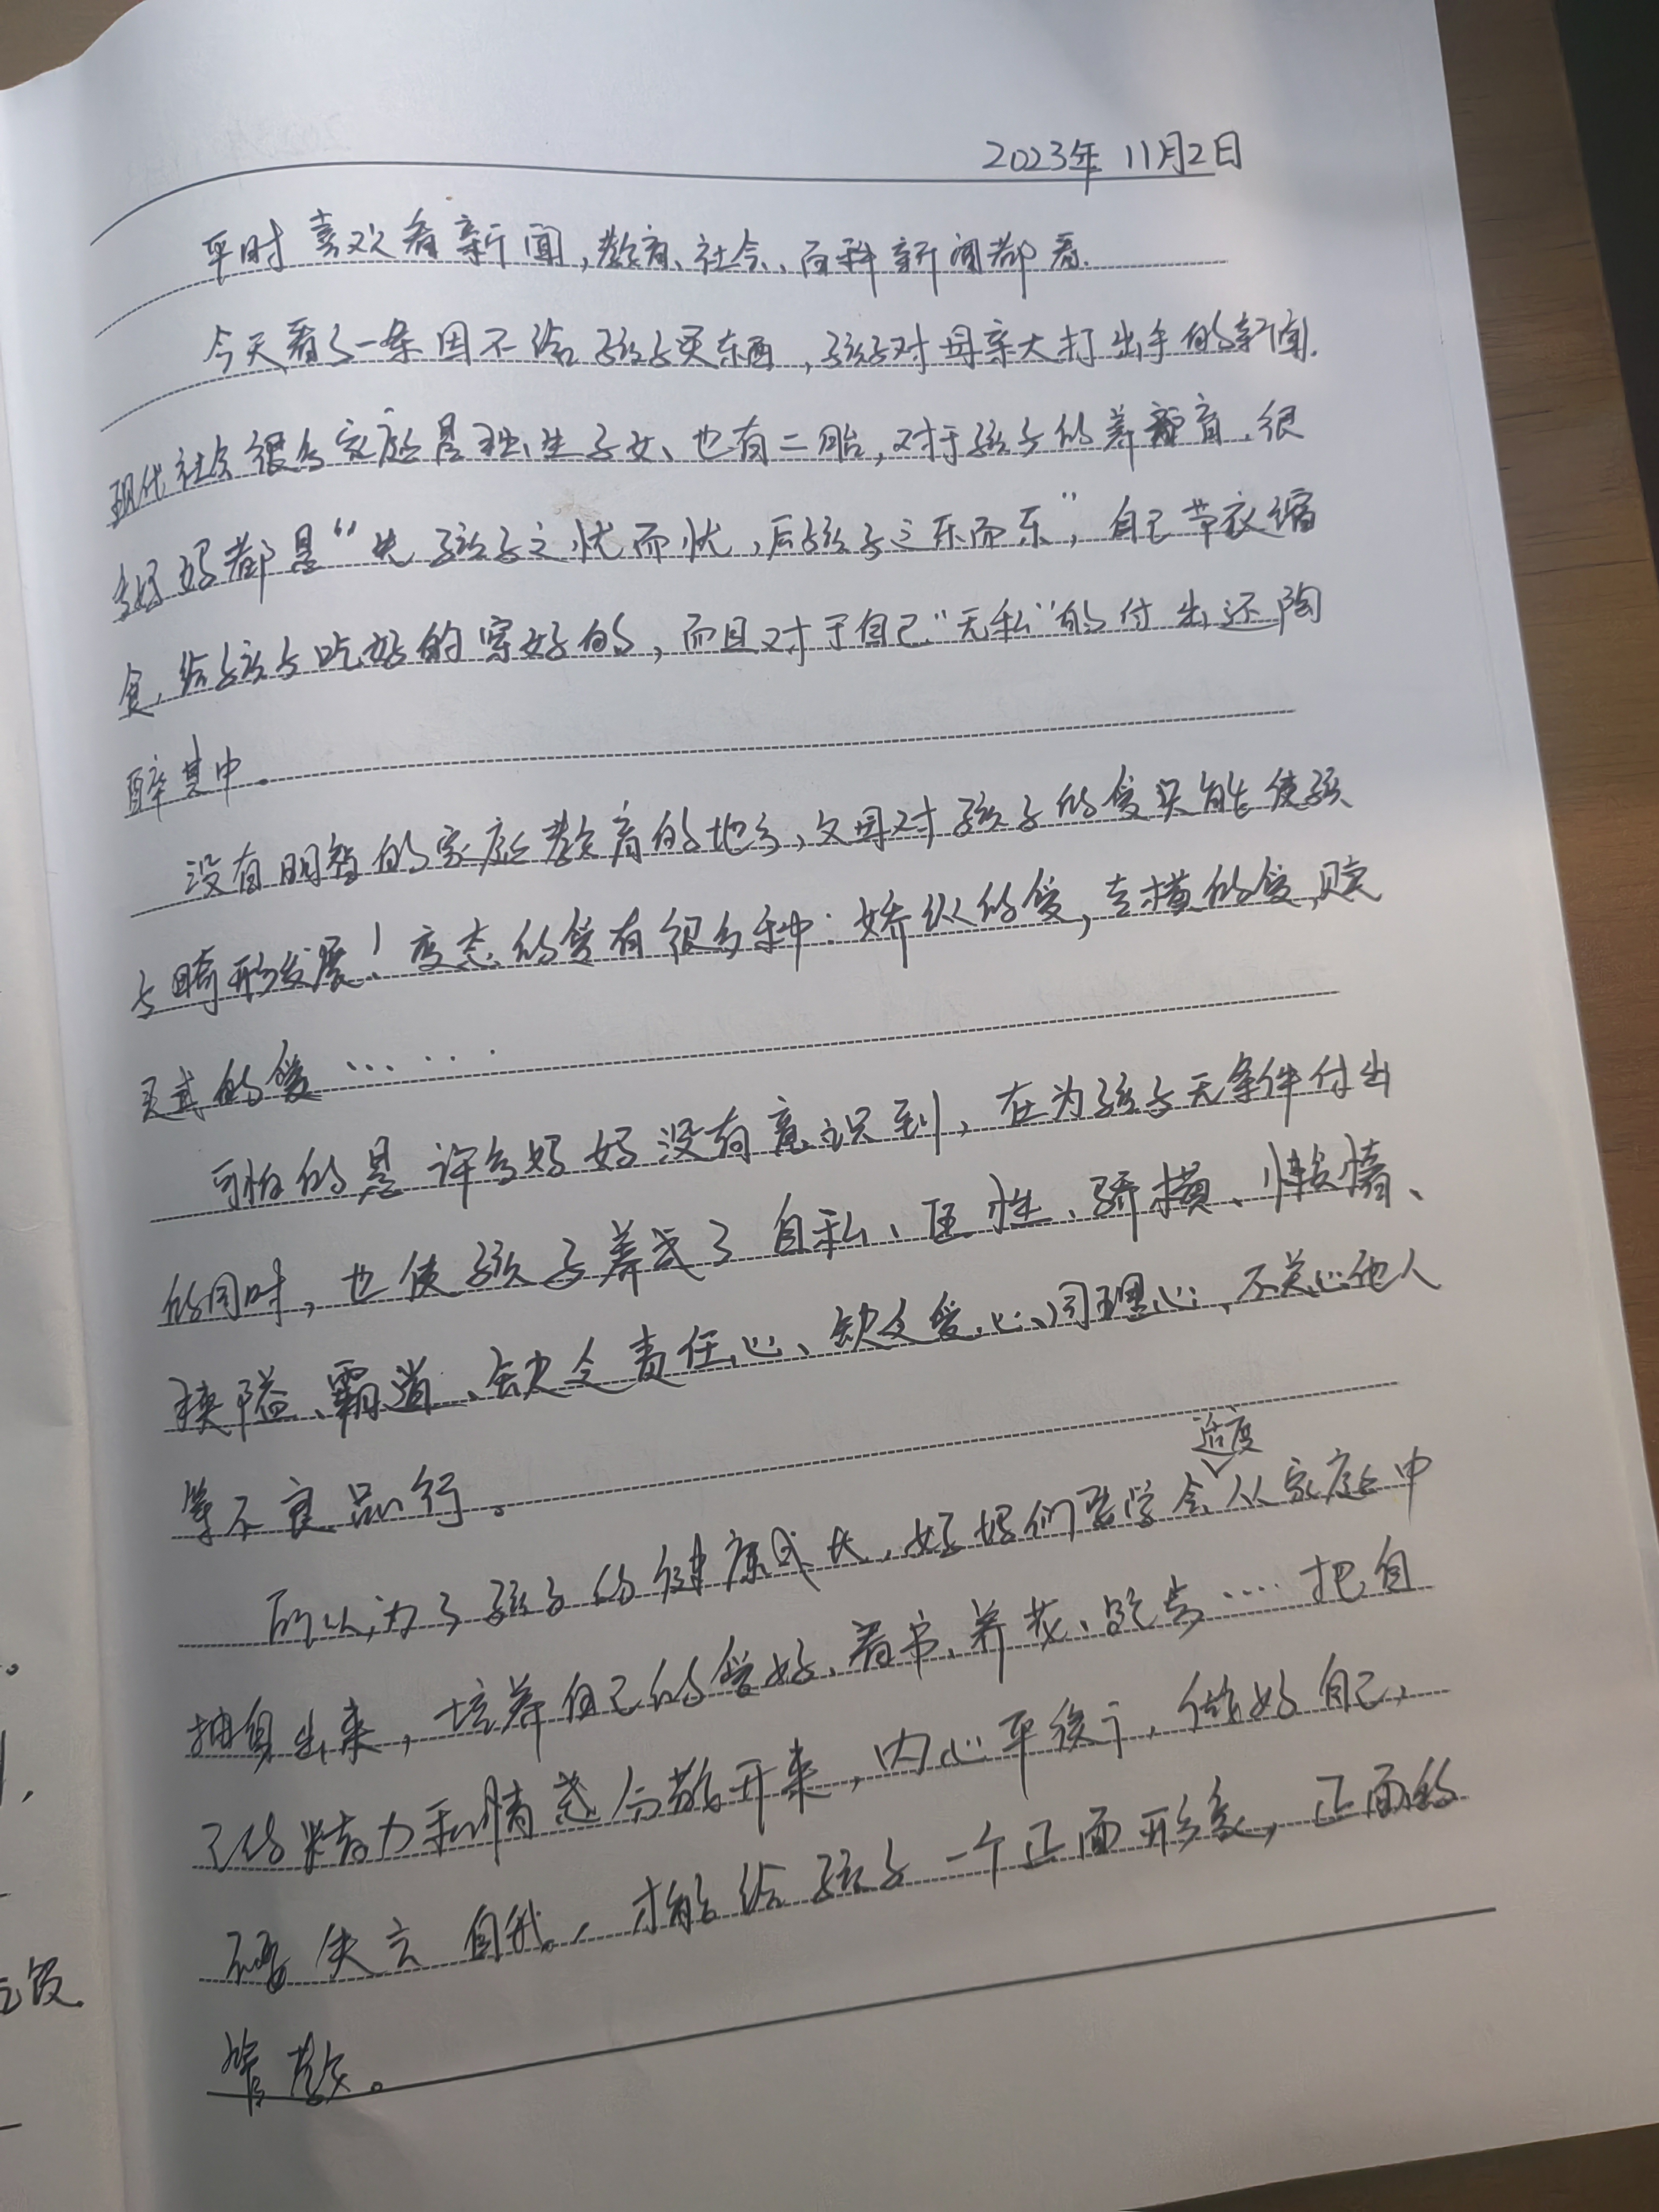 2023年11月2日
平时喜欢看新闻,教育、社会、百科新闻都看.
今天看了一条因不给孩子买东西,孩子对母亲大打出手的新闻.
现代社会很多家庭是独生子女、也有二胎,对于孩子的养育.很
妈妈都是“先孩子之忧而忧,后孩子之乐而乐”,自己节衣缩
食,给孩子吃好的穿好的,而且对于自己“无私”的付出还陶
醉其中.
没有明智的家庭教育的地方,父母对孩子的爱只能使孩
子畸形发展!变态的爱有很多种:娇纵的爱,专横的爱,赎
买式的爱……
可怕的是许多妈妈没有意识到,在为孩子无条件付出
的同时,也使孩子养成了自私、任性、骄横、懒惰、
狭隘、霸道、缺乏责任心、缺乏爱心、同理心,不关心他人
等不良品行。
适度
所以,为了孩子的健康成长,妈妈们要学会从家庭中
抽身出来,培养自己的爱好、看书、养花、跑步……把自
己的精力和情感分散开来,内心平衡了,做好自己,
不要失去自我,才能给孩子一个正面形象,正面的
管教。
段.